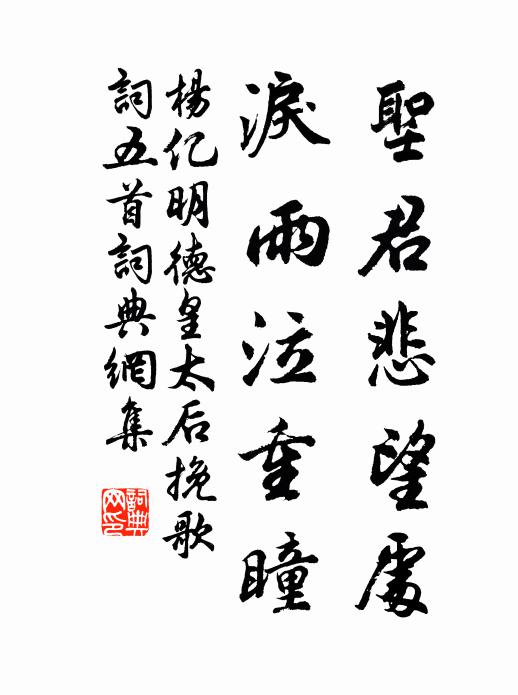 聖君悲望處
淚雨泣重瞳
楊亿明德皇太后挽歌
詞五首詞典網集
詞典网印